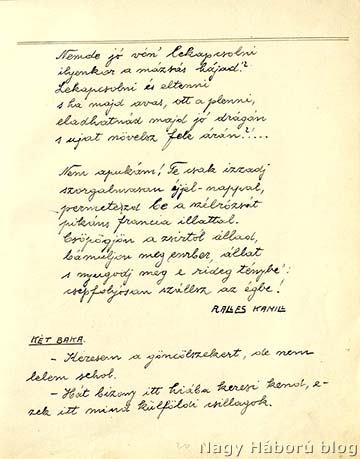 Nemde jó vón' lekapcsolni
ilyenkor a mázsás hájad?
Lekapcsolni és eltenni
s ha majd avas, ott a plenni,
eladhatnád majd jó drágán
s ujat növelsz fele árán?!...
Nem apukám! Te csak izzadj
szorgalmasan éjjel-nappal,
permetezd be a szélrózsát
pikáns francia illattal.
Csöpögjön a zsirtól állad,
bámuljon meg ember, állat
s nyugodj meg e rideg ténybe':
cseppfolyósan szállsz az égbe!
RALLES KAMILL
KÉT BAKA.
- Keresem a göncölszekert, de nem
lelem sehol.
- Hát bizony itt hiába keresi kend, e-
zek itt mind külföldi csillagok.
20
Nagy Háború blog